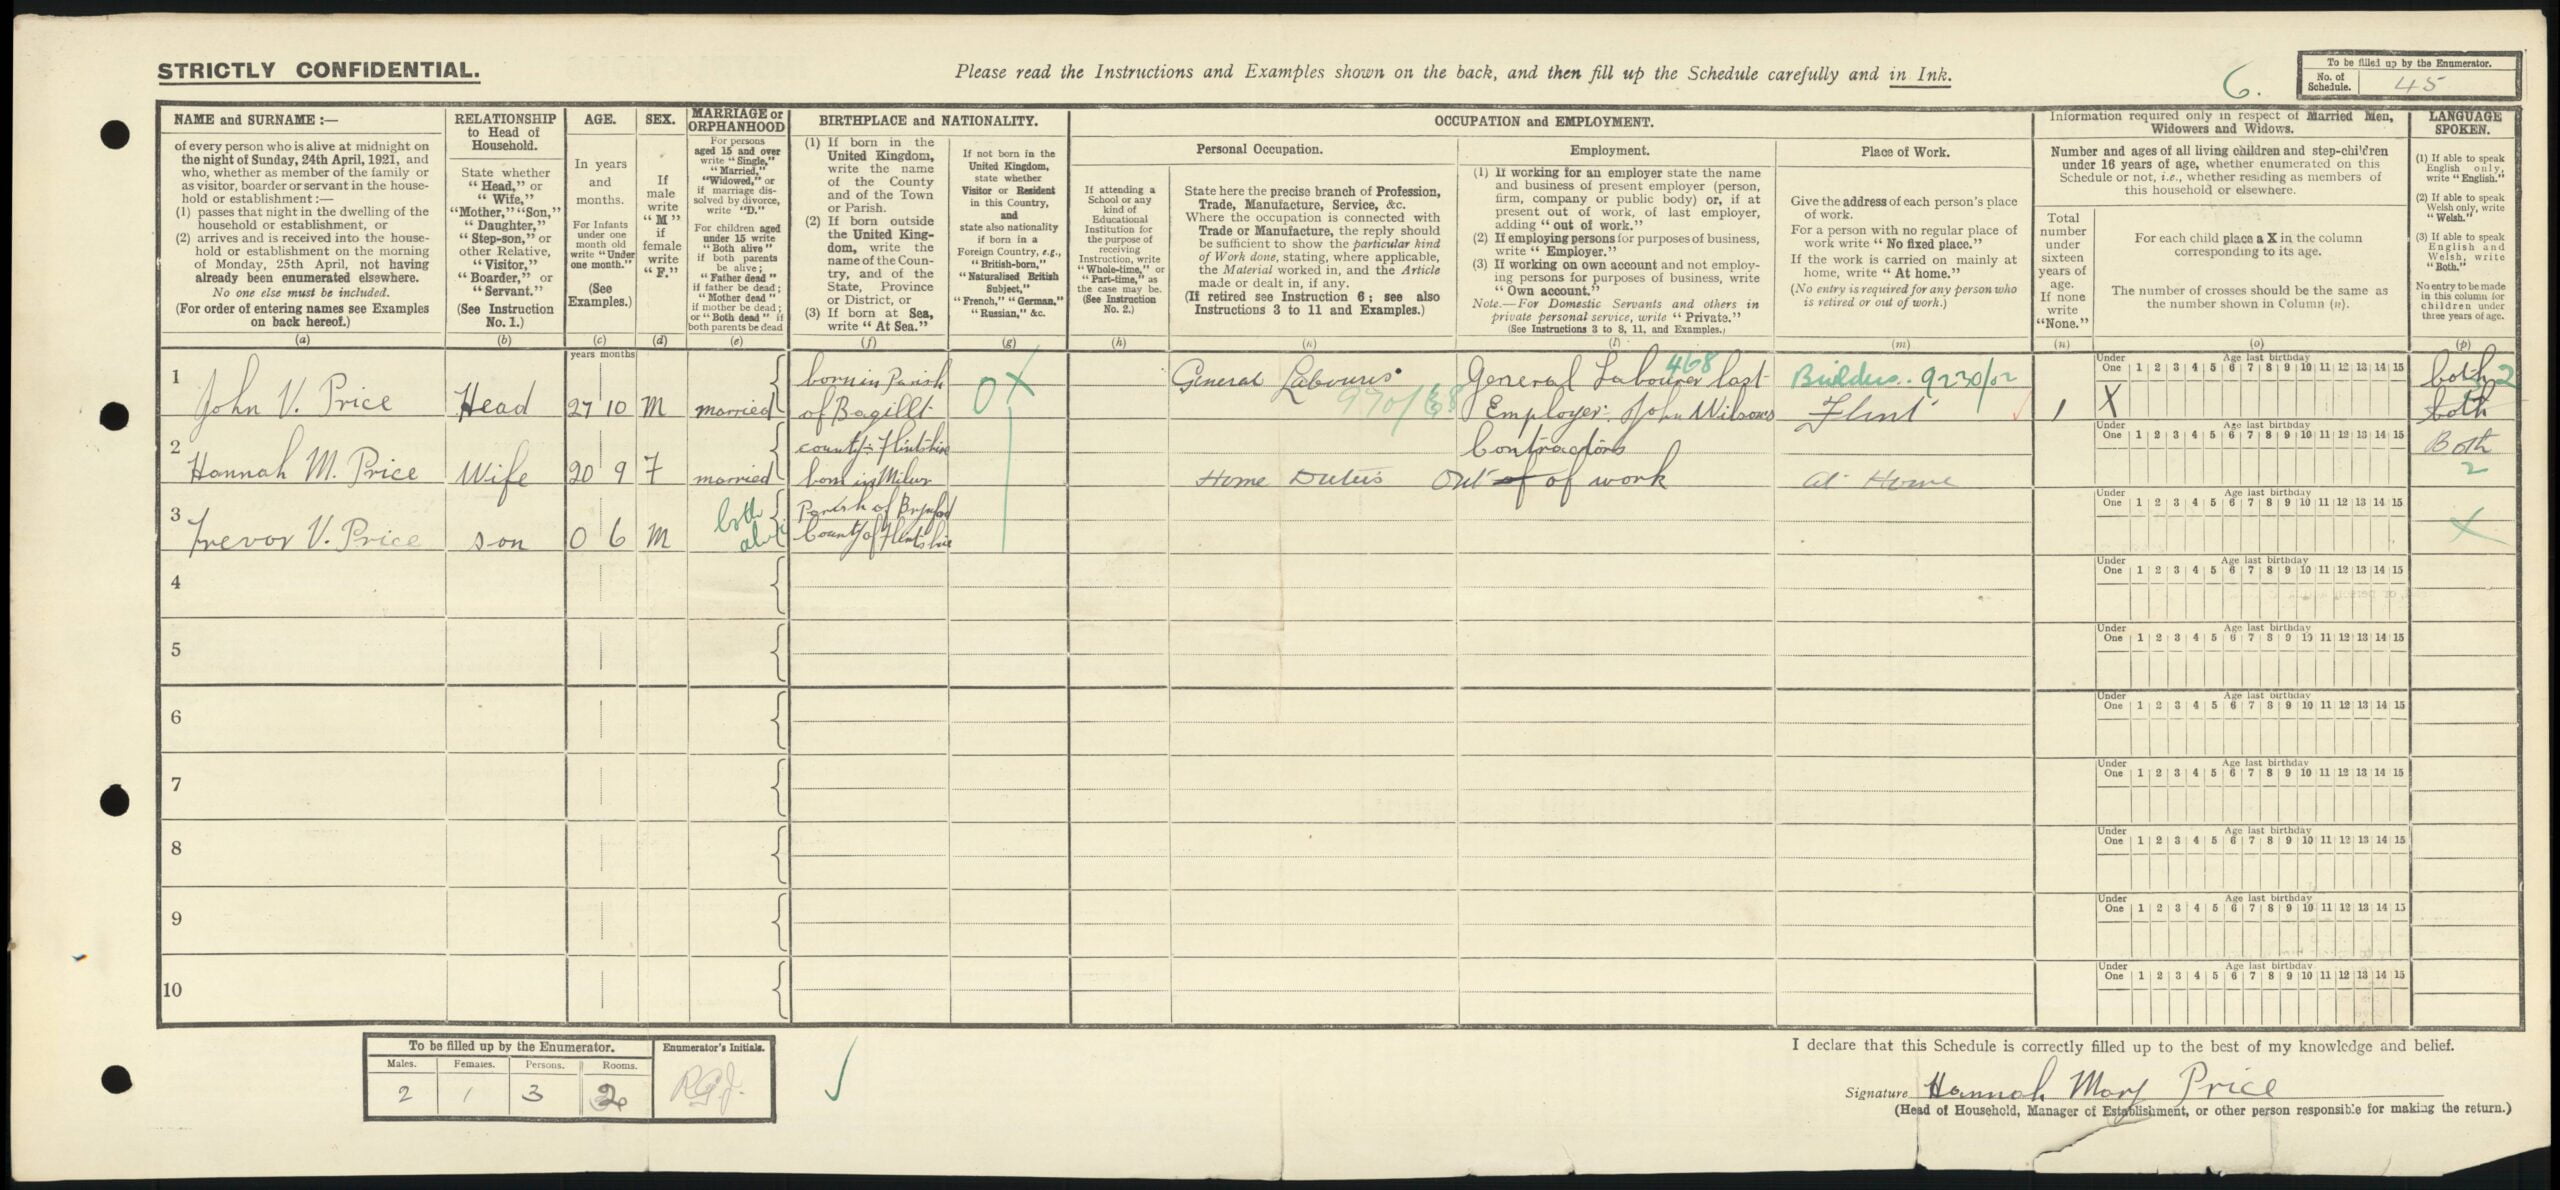 STRICTLY CONFIDENTIAL.
Please read the Instructions and Examples shown on the back, and then fill up the Schedule carefully and in Ink.
6.
To be filled up by the Enumerator.
No. of Schedule. 45
NAME and SURNAME :—
of every person who is alive at midnight on
the night of Sunday, 24th April, 1921, and
who, whether as member of the family or
as visitor, boarder or servant in the house-
hold or establishment :—
(1) passes that night in the dwelling of the
household or establishment, or
(2) arrives and is received into the house-
hold or establishment on the morning
of Monday, 25th April, not having
already been enumerated elsewhere.
No one else must be included.
(For order of entering names see Examples
on back hereof.)
(a)
RELATIONSHIP
to Head of
Household.
State whether
"Head," or
"Wife,"
"Mother," "Son,"
"Daughter,"
"Step-son," or
other Relative,
"Visitor,"
"Boarder," or
"Servant."
(See Instruction
No. 1.)
(b)
AGE.
In years
and
months.
For Infants
under one
month old
write "Under
one month."
(See
Examples.)
(c)
SEX.
If
male
write
"M"
if
female
write
"F."
(d)
MARRIAGE or
ORPHANHOOD
For persons
aged 15 and over
write "Single,"
"Married,"
"Widowed," or
if marriage dis-
solved by divorce,
write "D."
For children aged
under 15 write
"Both alive"
if both parents
be alive;
"Father dead"
if father be dead;
"Mother dead"
if mother be dead;
or "Both dead" if
both parents be dead
(e)
BIRTHPLACE and NATIONALITY.
(1) If born in the
United Kingdom,
write the name
of the County
and of the Town
or Parish.
(2) If born outside
the United King-
dom, write the
name of the Coun-
try, and of the
State, Province
or District, or
(3) If born at Sea,
write "At Sea."
(f)
If not born in the
United Kingdom,
state whether
Visitor or Resident
in this Country,
and
state also nationality
if born in a
Foreign Country, e.g.,
"British-born,"
"Naturalised British
Subject,"
"French," "German,"
"Russian," &c.
(g)
OCCUPATION and EMPLOYMENT.
If attending a
School or any
kind of
Educational
Institution for
the purpose of
receiving
Instruction, write
"Whole-time," or
"Part-time," as
the case may be.
(See Instruction
No. 2.)
(h)
Personal Occupation.
State here the precise branch of Profession,
Trade, Manufacture, Service, &c.
Where the occupation is connected with
Trade or Manufacture, the reply should
be sufficient to show the particular kind
of Work done, stating, where applicable,
the Material worked in, and the Article
made or dealt in, if any.
(If retired see Instruction 6; see also
Instructions 3 to 11 and Examples.)
(k)
Employment.
(1) If working for an employer state the name
and business of present employer (person,
firm, company or public body) or, if at
present out of work, of last employer,
adding "out of work."
(2) If employing persons for purposes of business,
write "Employer."
(3) If working on own account and not employ-
ing persons for purposes of business, write
"Own account."
Note.—For Domestic Servants and others in
private personal service, write "Private."
(See Instructions 3 to 8, 11, and Examples.)
(l)
Place of Work.
Give the address of each person's place
of work.
For a person with no regular place of
work write "No fixed place."
If the work is carried on mainly at
home, write "At home."
(No entry is required for any person who
is retired or out of work.)
(m)
Information required only in respect of Married Men,
Widowers and Widows.
Number and ages of all living children and step-children
under 16 years of age, whether enumerated on this
Schedule or not, i.e., whether residing as members of
this household or elsewhere.
Total
number
under
sixteen
years of
age.
If none
write
"None."
(n)
For each child place a X in the column
corresponding to its age.
The number of crosses should be the same as
the number shown in Column (n).
(o)
LANGUAGE
SPOKEN.
(1) If able to speak
English only,
write "English."
(2) If able to speak
Welsh only, write
"Welsh."
(3) If able to speak
English and
Welsh, write
"Both."
No entry to be made
in this column for
children under
three years of age.
(p)
years months
Under One 1 2 3 4 5 6 7 8 9 10 11 12 13 14 15
Age last birthday
1 John V. Price Head 27 10 M married born in Parish of Bagillt OX General Labourer 970/ General Labourer last 468 Employer: John Wilsons Builders. Flint 1 X both 2
both
2 Hannah M. Price Wife 20 9 F married county: Flintshire born in Milwr Home Duties Contractors Out of of work at Home Both 2
Under One 1 2 3 4 5 6 7 8 9 10 11 12 13 14 15
Age last birthday
3 Trevor V. Price son 0 6 M both alive Parish of County of Flintshire X
Under One 1 2 3 4 5 6 7 8 9 10 11 12 13 14 15
Age last birthday
4
Under One 1 2 3 4 5 6 7 8 9 10 11 12 13 14 15
Age last birthday
5
Under One 1 2 3 4 5 6 7 8 9 10 11 12 13 14 15
Age last birthday
6
Under One 1 2 3 4 5 6 7 8 9 10 11 12 13 14 15
Age last birthday
7
Under One 1 2 3 4 5 6 7 8 9 10 11 12 13 14 15
Age last birthday
8
Under One 1 2 3 4 5 6 7 8 9 10 11 12 13 14 15
Age last birthday
9
Under One 1 2 3 4 5 6 7 8 9 10 11 12 13 14 15
Age last birthday
10
Under One 1 2 3 4 5 6 7 8 9 10 11 12 13 14 15
Age last birthday
To be filled up by the Enumerator.
Males. Females. Persons. Rooms.
2 1 3 2
Enumerator's Initials.
RGJ.
I declare that this Schedule is correctly filled up to the best of my knowledge and belief.
Signature Hannah Mary Price
(Head of Household, Manager of Establishment, or other person responsible for making the return.)